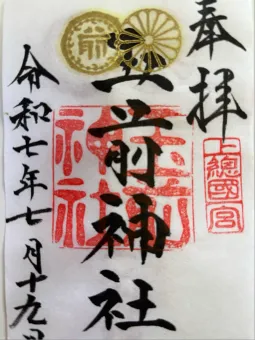 奉拝
上總國一宮
玉前神社
玉前神社
令和七年七月十九日